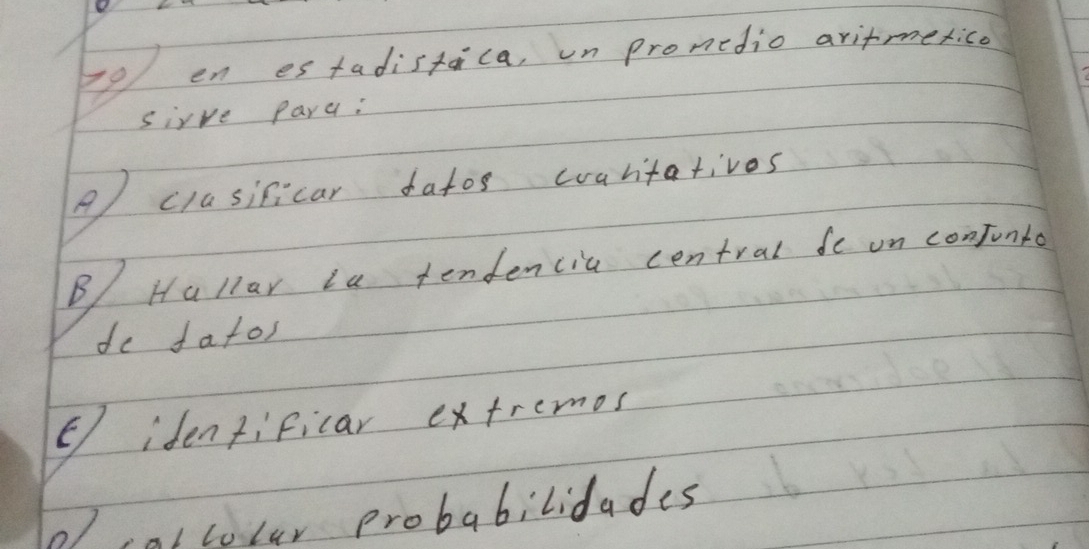 en estadistica, un promedio aritmetico
sirve para:
A) clasificar datos cualitativos
B) Hallar la tendencia central de un conjunto
de datos
C) identificar extremos
D) calcular probabilidades